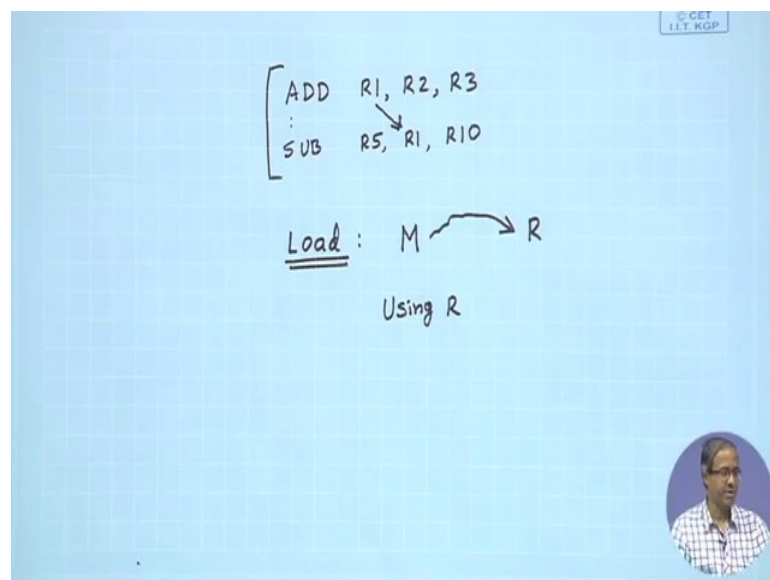 © CET
I.I.T. KGP
ADD R1, R2, R3
:
SUB R5, R1, R10
Load : M R
Using R